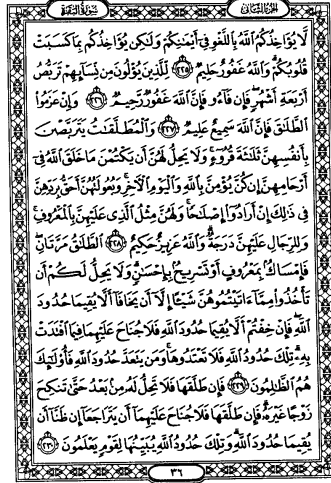 الجزء الثاني
سورة البقرة
لَّا يُؤَاخِذُكُمُ ٱللَّهُ بِٱللَّغْوِ فِىٓ أَيْمَٰنِكُمْ وَلَٰكِن يُؤَاخِذُكُم بِمَا كَسَبَتْ
قُلُوبُكُمْ وَٱللَّهُ غَفُورٌ حَلِيمٌ ٢٢٥ لِّلَّذِينَ يُؤْلُونَ مِن نِّسَآئِهِمْ تَرَبُّصُ
أَرْبَعَةِ أَشْهُرٍ فَإِن فَآءُو فَإِنَّ ٱللَّهَ غَفُورٌ رَّحِيمٌ ٢٢٦ وَإِنْ عَزَمُوا۟
ٱلطَّلَٰقَ فَإِنَّ ٱللَّهَ سَمِيعٌ عَلِيمٌ ٢٢٧ وَٱلْمُطَلَّقَٰتُ يَتَرَبَّصْنَ
بِأَنفُسِهِنَّ ثَلَٰثَةَ قُرُوٓءٍ وَلَا يَحِلُّ لَهُنَّ أَن يَكْتُمْنَ مَا خَلَقَ ٱللَّهُ فِىٓ
أَرْحَامِهِنَّ إِن كُنَّ يُؤْمِنَّ بِٱللَّهِ وَٱلْيَوْمِ ٱلْءَاخِرِ وَبُعُولَتُهُنَّ أَحَقُّ بِرَدِّهِنَّ
فِى ذَٰلِكَ إِنْ أَرَادُوٓا۟ إِصْلَٰحًا وَلَهُنَّ مِثْلُ ٱلَّذِى عَلَيْهِنَّ بِٱلْمَعْرُوفِ
وَلِلرِّجَالِ عَلَيْهِنَّ دَرَجَةٌ وَٱللَّهُ عَزِيزٌ حَكِيمٌ ٢٢٨ ٱلطَّلَٰقُ مَرَّتَانِ
فَإِمْسَاكٌۢ بِمَعْرُوفٍ أَوْ تَسْرِيحٌۢ بِإِحْسَٰنٍ وَلَا يَحِلُّ لَكُمْ أَن
تَأْخُذُوا۟ مِمَّآ ءَاتَيْتُمُوهُنَّ شَيْـًٔا إِلَّآ أَن يَخَافَآ أَلَّا يُقِيمَا حُدُودَ
ٱللَّهِ فَإِنْ خِفْتُمْ أَلَّا يُقِيمَا حُدُودَ ٱللَّهِ فَلَا جُنَاحَ عَلَيْهِمَا فِيمَا ٱفْتَدَتْ
بِهِۦ تِلْكَ حُدُودُ ٱللَّهِ فَلَا تَعْتَدُوهَا وَمَن يَتَعَدَّ حُدُودَ ٱللَّهِ فَأُو۟لَٰٓئِكَ
هُمُ ٱلظَّٰلِمُونَ ٢٢٩ فَإِن طَلَّقَهَا فَلَا تَحِلُّ لَهُۥ مِنۢ بَعْدُ حَتَّىٰ تَنكِحَ
زَوْجًا غَيْرَهُۥ فَإِن طَلَّقَهَا فَلَا جُنَاحَ عَلَيْهِمَآ أَن يَتَرَاجَعَآ إِن ظَنَّآ أَن
يُقِيمَا حُدُودَ ٱللَّهِ وَتِلْكَ حُدُودُ ٱللَّهِ يُبَيِّنُهَا لِقَوْمٍ يَعْلَمُونَ ٢٣٠
٣٦